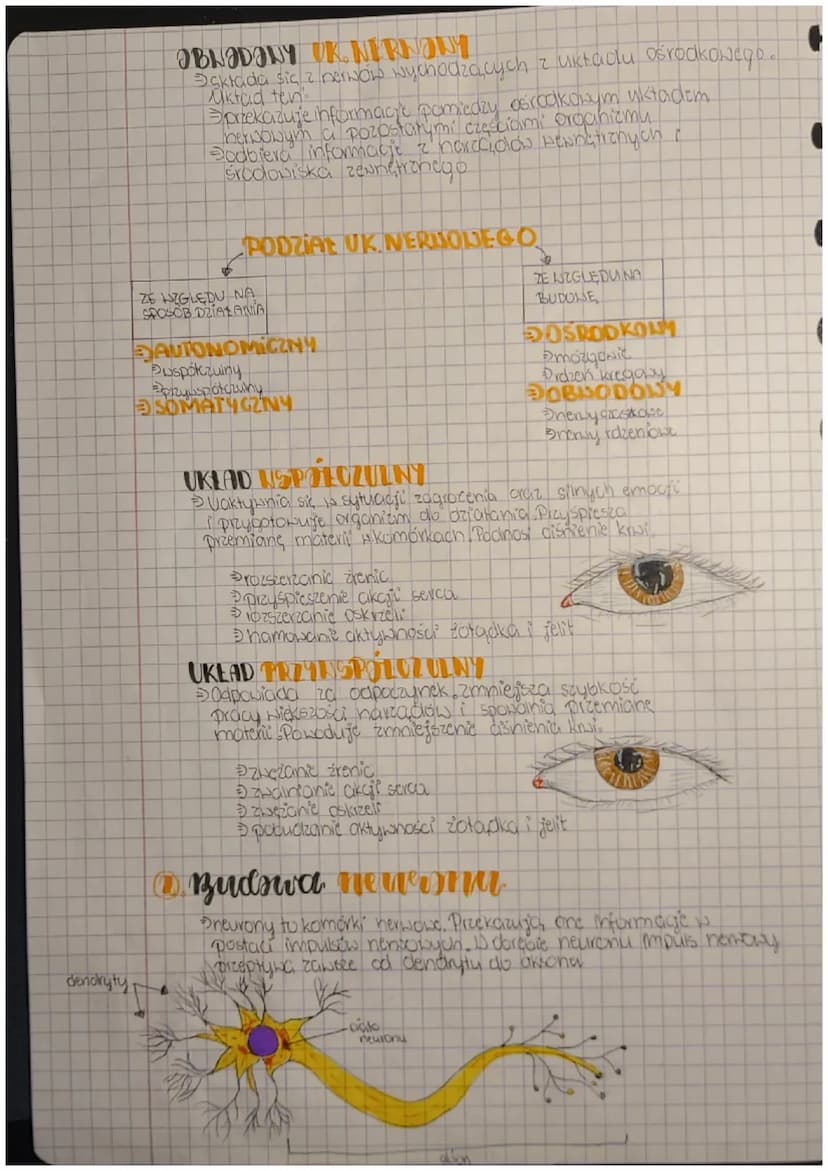 OBWODOWY UK. NERWOWY
składa się z nerwów wychodzących z układu ośrodkowego.
Układ ten:
przekazuje informacje pomiędzy ośrodkowym układem
nerwowym a pozostałymi częściami organizmu
odbiera informacje z narządów wewnętrznych i
środowiska zewnętrznego
PODZIAŁ UK. NERWOWEGO
ZE WZGLĘDU NA
SPOSÓB DZIAŁANIA
AUTONOMICZNY
współczulny
przywspółczulny
SOMATYCZNY
ZE WZGLĘDU NA
BUDOWĘ
OŚRODKOWY
mózgowie
rdzeń kręgowy
OBWODOWY
nerwy czaszkowe
nerwy rdzeniowe
UKŁAD WSPÓŁCZULNY
Uaktywnia się w sytuacji zagrożenia oraz silnych emocji
i przygotowuje organizm do działania. Przyspiesza
przemianę materii w komórkach. Podnosi ciśnienie krwi.
rozszerzanie źrenic
przyśpieszenie akcji serca
rozszerzanie oskrzeli
hamowanie aktywności żołądka i jelit
UKŁAD PRZYWSPÓŁCZULNY
Odpowiada za odpoczynek, zmniejsza szybkość
pracy większości narządów i spowalnia przemianę
materii. Powoduje zmniejszenie ciśnienia krwi.
zwężanie źrenic
zwalnianie akcji serca
zwężanie oskrzeli
pobudzanie aktywności żołądka i jelit
2. Budowa neuronu
neurony to komórki nerwowe. Przekazują one informacje w
postaci impulsów nerwowych. W obrębie neuronu impuls nerwowy
przepływa zawsze od dendrytu do aksona
dendryty
ciało
neuronu
akson